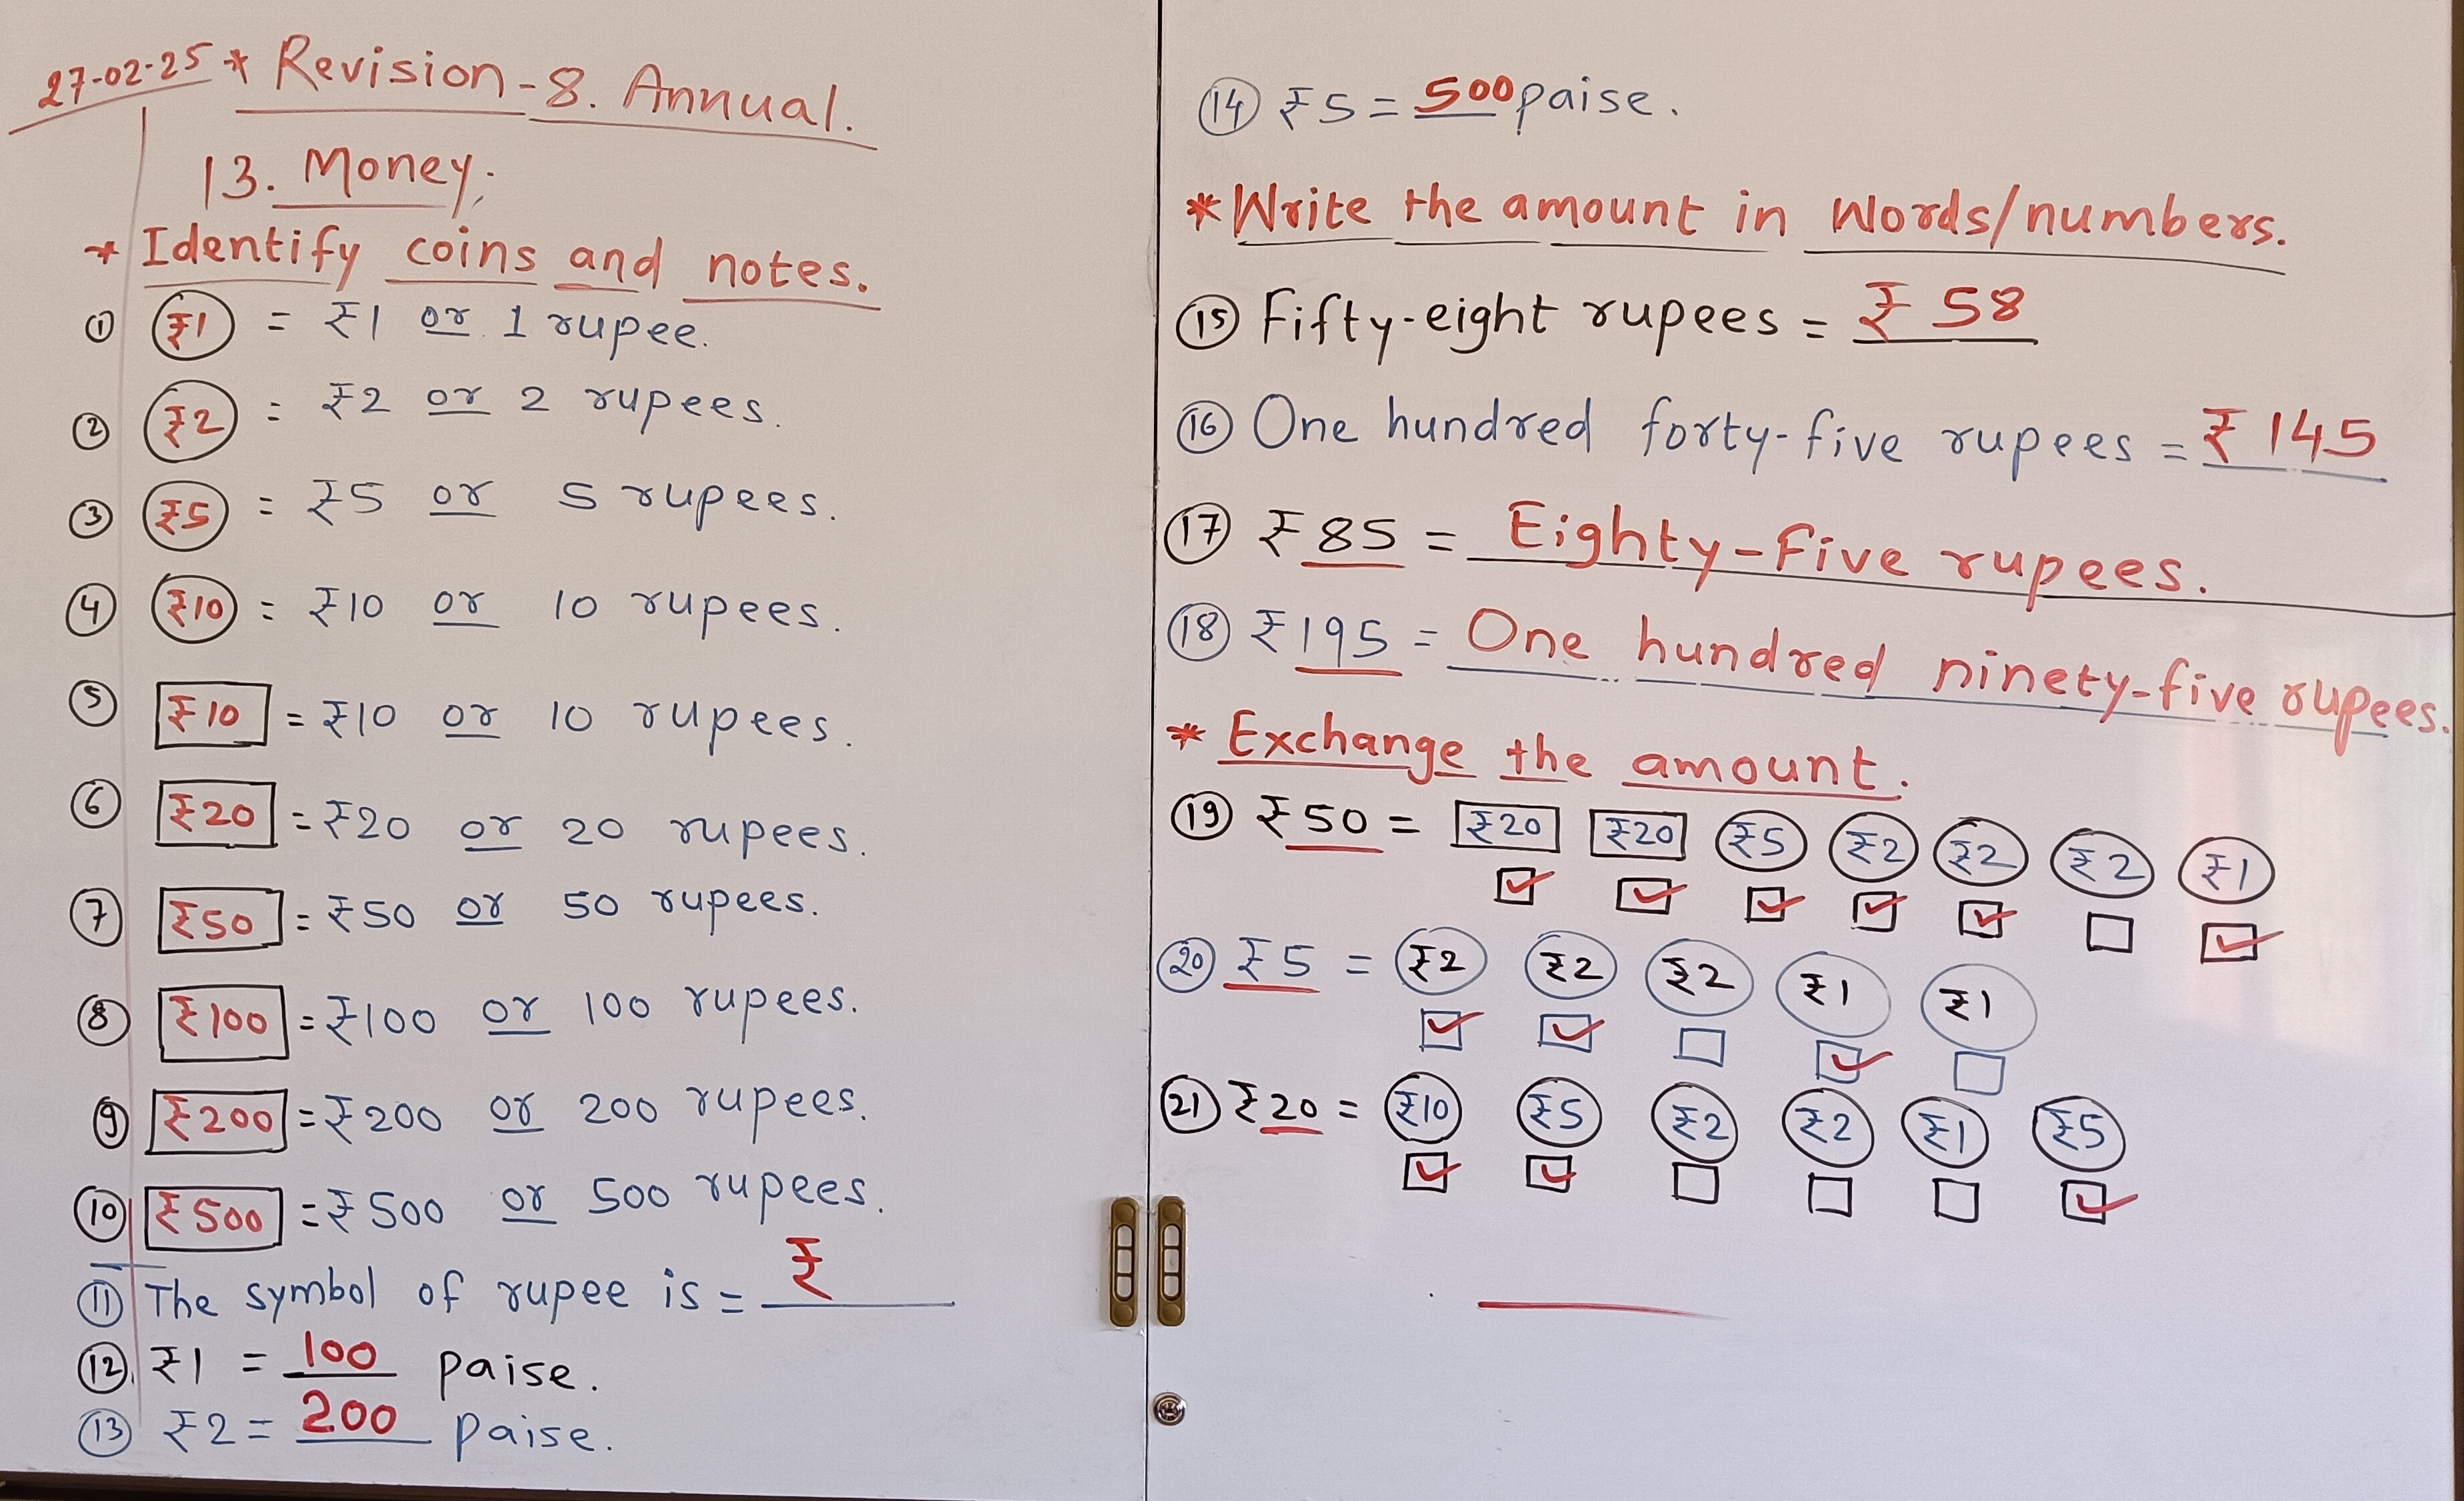 27-02-25 * Revision-8. Annual.
13. Money:
* Identify coins and notes.
① ₹1 = ₹1 or 1 rupee.
② ₹2 = ₹2 or 2 rupees.
③ ₹5 = ₹5 or 5 rupees.
④ ₹10 = ₹10 or 10 rupees.
⑤ ₹10 = ₹10 or 10 rupees.
⑥ ₹20 = ₹20 or 20 rupees.
⑦ ₹50 = ₹50 or 50 rupees.
⑧ ₹100 = ₹100 or 100 rupees.
⑨ ₹200 = ₹200 or 200 rupees.
⑩ ₹500 = ₹500 or 500 rupees.
⑪ The symbol of rupee is = ₹
⑫. ₹1 = 100 paise.
⑬ ₹2 = 200 paise.
⑭ ₹5 = 500 paise.
* Write the amount in words/numbers.
⑮ Fifty-eight rupees = ₹58
⑯ One hundred forty-five rupees = ₹145
⑰ ₹85 = Eighty-Five rupees.
⑱ ₹195 = One hundred ninety-five rupees.
* Exchange the amount.
⑲ ₹50 = ₹20 ₹20 ₹5 ₹2 ₹2 ₹2 ₹1
☑ ☑ ☑ ☑ ☑ ☐ ☑
⑳ ₹5 = ₹2 ₹2 ₹2 ₹1 ₹1
☑ ☑ ☐ ☑ ☐
㉑ ₹20 = ₹10 ₹5 ₹2 ₹2 ₹1 ₹5
☑ ☑ ☐ ☐ ☐ ☑